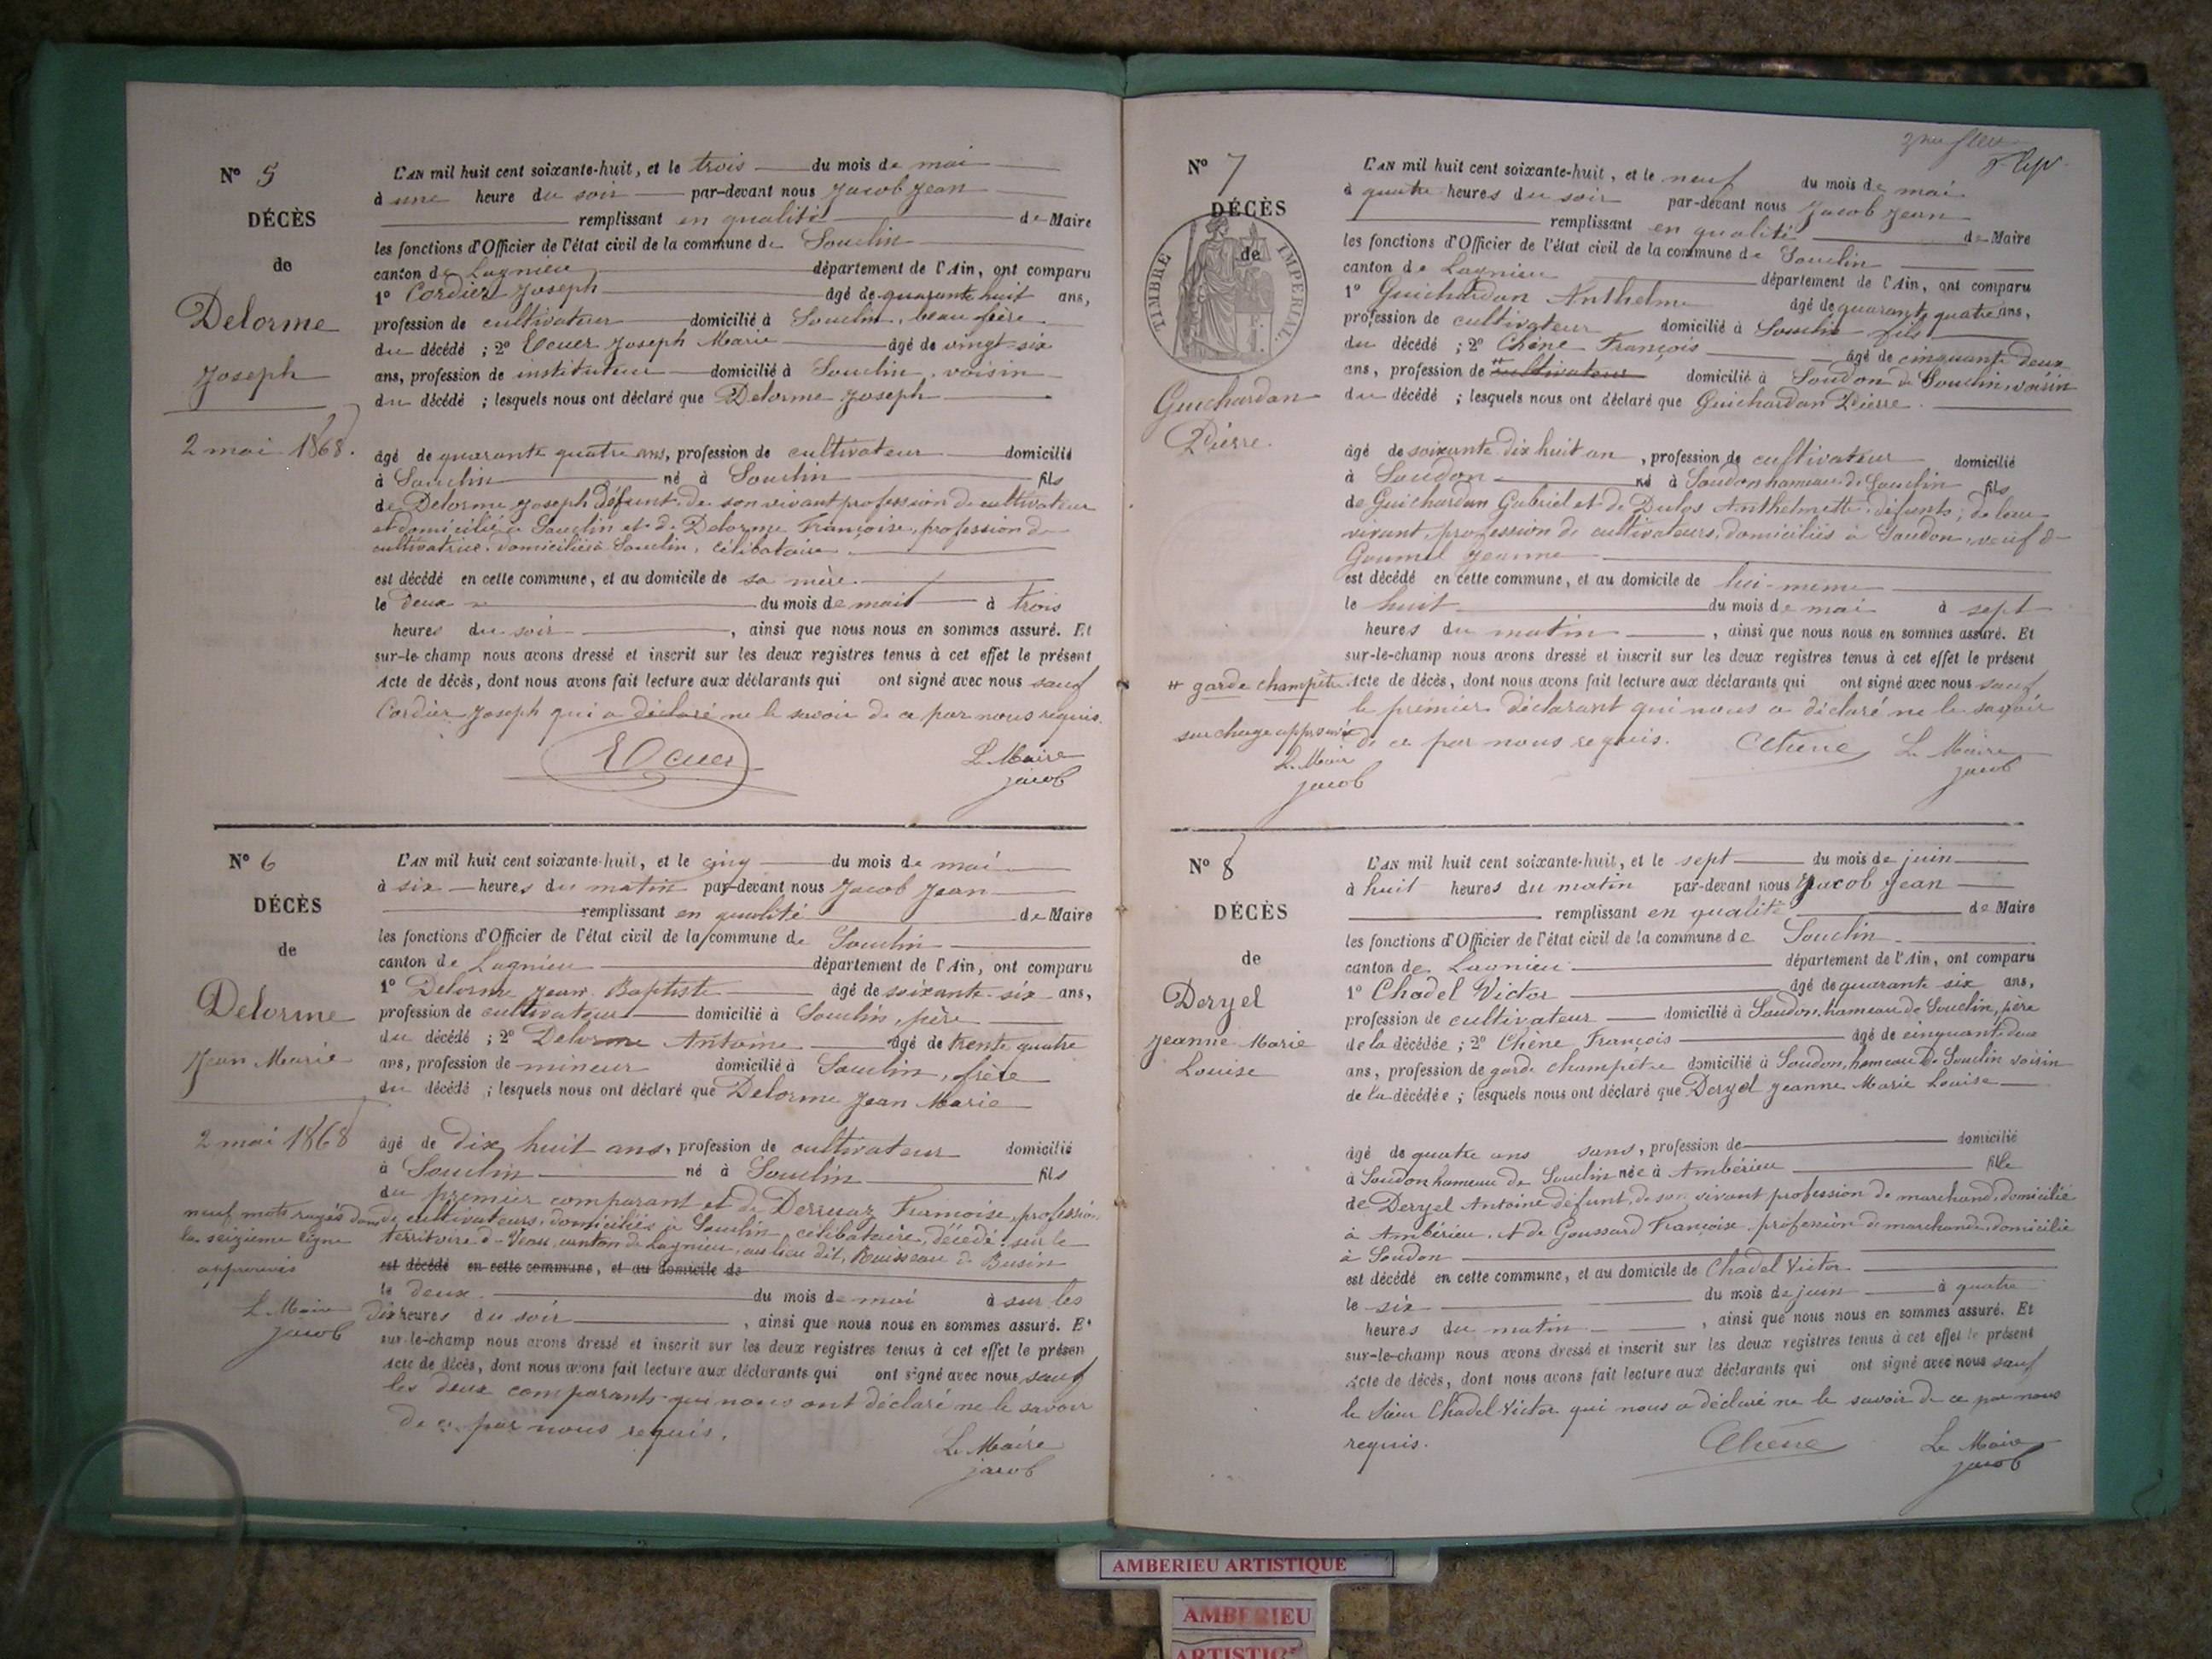 N° 5
DÉCÈS
de
Delorme
Joseph
2 mai 1868.
L'AN mil huit cent soixante-huit, et le trois du mois de mai
à une heure du soir par-devant nous Jacob Jean
remplissant en qualité de Maire
les fonctions d'Officier de l'état civil de la commune de Souclin
canton de Lagnieu département de l'Ain, ont comparu
1° Cordier Joseph âgé de quarante huit ans,
profession de cultivateur domicilié à Souclin, beau frère
du décédé ; 2° Joseph Marie âgé de vingt-six
ans, profession de instituteur domicilié à Souclin, voisin
du décédé ; lesquels nous ont déclaré que Delorme Joseph
âgé de quarante quatre ans, profession de cultivateur domicilié
à Souclin né à Souclin fils
de Delorme Joseph défunt, de son vivant profession de cultivateur
et domicilié à Souclin et de Delorme Françoise, profession de
cultivatrice, domiciliée à Souclin, célibataire.
est décédé en cette commune, et au domicile de sa mère.
le deux du mois de mai à trois
heures du soir, ainsi que nous nous en sommes assuré. Et
sur-le-champ nous avons dressé et inscrit sur les deux registres tenus à cet effet le présent
Acte de décès, dont nous avons fait lecture aux déclarants qui ont signé avec nous sauf
Cordier Joseph qui a déclaré ne le savoir de ce par nous requis.
Le Maire
Jacob
N° 6
DÉCÈS
de
Delorme
Jean Marie
2 mai 1868
neuf mots rayés dans
la seizième ligne
approuvés
Le Maire
Jacob
L'AN mil huit cent soixante-huit, et le cinq du mois de mai
à six heures du matin par-devant nous Jacob Jean
remplissant en qualité de Maire
les fonctions d'Officier de l'état civil de la commune de Souclin
canton de Lagnieu département de l'Ain, ont comparu
1° Delorme Jean Baptiste âgé de soixante-six ans,
profession de cultivateur domicilié à Souclin, père
du décédé ; 2° Delorme Antoine âgé de trente quatre
ans, profession de mineur domicilié à Souclin, frère
du décédé ; lesquels nous ont déclaré que Delorme Jean Marie
âgé de dix huit ans, profession de cultivateur domicilié
à Souclin né à Souclin fils
du premier comparant et de Françoise, profession
de cultivateurs, domiciliés à Souclin, célibataire, décédé sur le
territoire de canton de Lagnieu, au lieu dit, Ruisseau de Busin
est décédé en cette commune, et au domicile de
le deux du mois de mai à sur les
dix heures du soir, ainsi que nous nous en sommes assuré. Et
sur-le-champ nous avons dressé et inscrit sur les deux registres tenus à cet effet le présen
Acte de décès, dont nous avons fait lecture aux déclarants qui ont signé avec nous sauf
les deux comparants qui nous ont déclaré ne le savoir
de ce par nous requis.
Le Maire
Jacob
N° 7
DÉCÈS
de
TIMBRE IMPERIAL.
Guichardan
Pierre.
# garde champêtre
surcharge approuvée
Le Maire
Jacob
L'AN mil huit cent soixante-huit, et le neuf du mois de mai
à quatre heures du soir par-devant nous Jacob Jean
remplissant en qualité de Maire
les fonctions d'Officier de l'état civil de la commune de Souclin
canton de Lagnieu département de l'Ain, ont comparu
1° Guichardan Anthelme âgé de quarante quatre ans,
profession de cultivateur domicilié à Souclin fils
du décédé ; 2° Chêne François âgé de cinquante deux
ans, profession de # cultivateur domicilié à Soudon de Souclin, voisin
du décédé ; lesquels nous ont déclaré que Guichardan Pierre.
âgé de soixante-dix huit an, profession de cultivateur domicilié
à Soudon né à Soudon hameau de Souclin fils
de Guichardan Gabriel et de Anthelmette, défunts; de leur
vivant, profession de cultivateurs, domiciliés à Soudon, veuf de
Jeanne
est décédé en cette commune, et au domicile de lui-même
le huit du mois de mai à sept
heures du matin, ainsi que nous nous en sommes assuré. Et
sur-le-champ nous avons dressé et inscrit sur les deux registres tenus à cet effet le présent
Acte de décès, dont nous avons fait lecture aux déclarants qui ont signé avec nous sauf
le premier déclarant qui nous a déclaré ne le savoir
de ce par nous requis. Chêne Le Maire
Jacob
N° 8
DÉCÈS
de
Deryel
Jeanne Marie
Louise
L'AN mil huit cent soixante-huit, et le sept du mois de juin
à huit heures du matin par-devant nous Jacob Jean
remplissant en qualité de Maire
les fonctions d'Officier de l'état civil de la commune de Souclin
canton de Lagnieu département de l'Ain, ont comparu
1° Chadel Victor âgé de quarante six ans,
profession de cultivateur domicilié à Soudon, hameau de Souclin, père
de la décédée ; 2° Chêne François âgé de cinquante deux
ans, profession de garde champêtre domicilié à Soudon, hameau de Souclin voisin
de la décédée ; lesquels nous ont déclaré que Deryel Jeanne Marie Louise
âgé de quatre ans sans, profession de domicilié
à Soudon hameau de Souclin née à Ambérieu fille
de Deryel Antoine défunt, de son vivant profession de marchand, domicilié
à Ambérieu, et de Goussard Françoise, profession de marchande, domicilié
à Soudon
est décédé en cette commune, et au domicile de Chadel Victor
le six du mois de juin à quatre
heures du matin, ainsi que nous nous en sommes assuré. Et
sur-le-champ nous avons dressé et inscrit sur les deux registres tenus à cet effet le présent
Acte de décès, dont nous avons fait lecture aux déclarants qui ont signé avec nous sauf
le Sieur Chadel Victor qui nous a déclaré ne le savoir de ce par nous
requis. Chêne Le Maire
Jacob
AMBERIEU ARTISTIQUE
AMBERIEU
ARTISTIQ